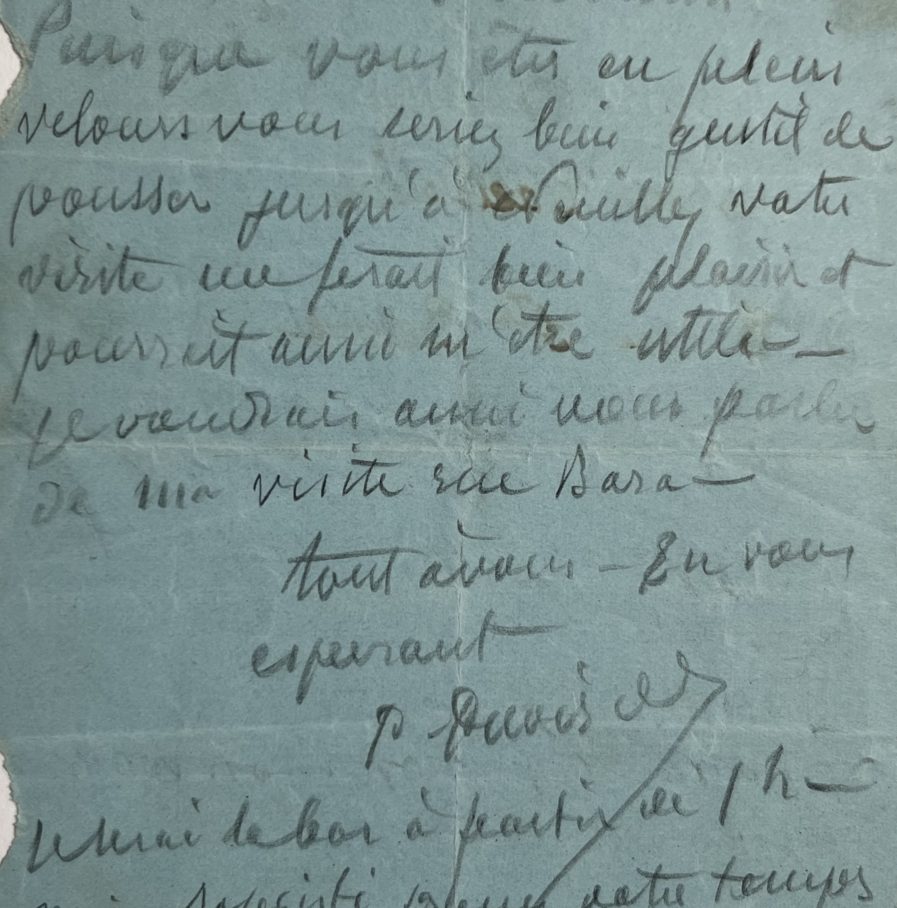 Puisque vous êtes en plein
velours vous seriez bien gentil de
pousser jusqu'à Neuilly votre
visite me ferait bien plaisir et
pourrait aussi m'être utile —
je voudrais aussi vous parler
de ma visite rue Bara —
tout à vous — En vous
esperant
P.
je serai là bas à partir de 1 h —
votre temps